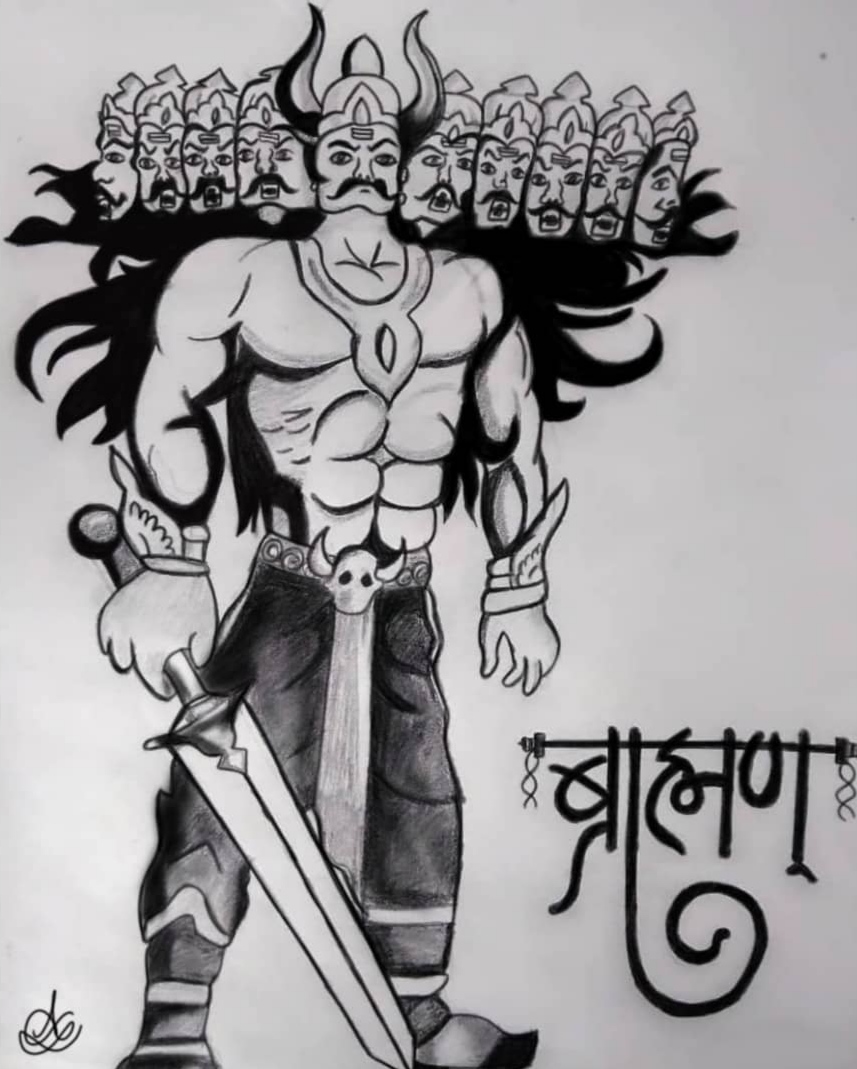 ब्राह्मण्